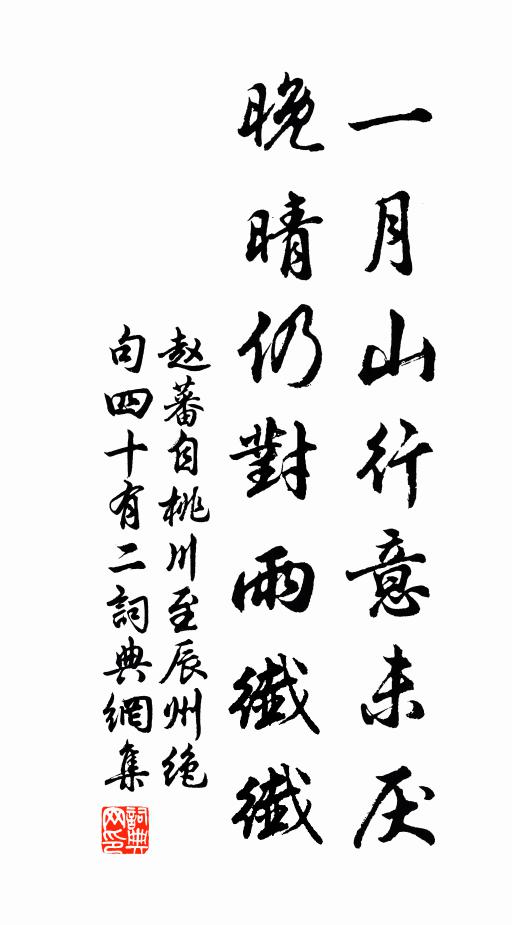 一月山行意未厌
晚晴仍對雨纖纖
赵蕃自桃川至辰州绝
句四十有二詞典網集
詞典
网印